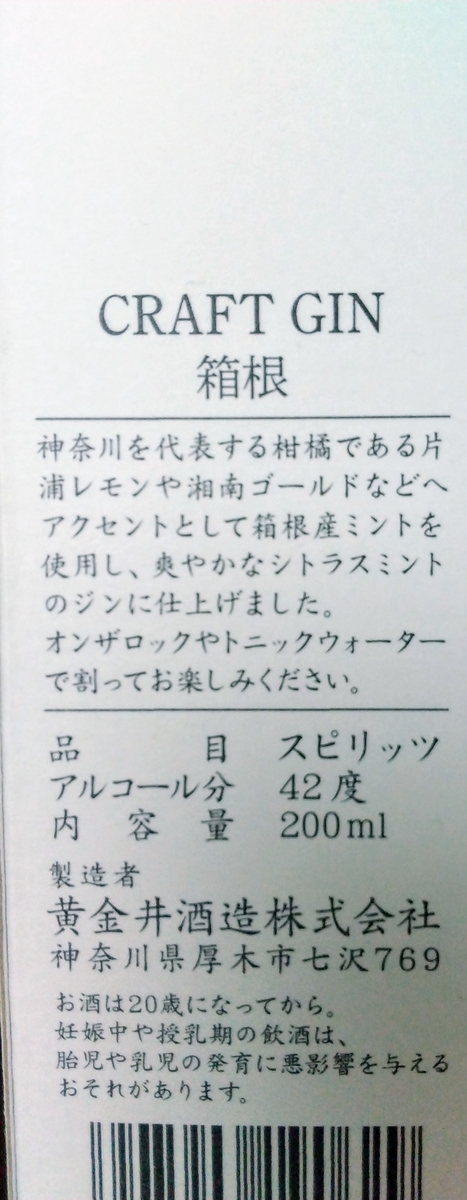 CRAFT GIN
箱根
神奈川を代表する柑橘である片
浦レモンや湘南ゴールドなどへ
アクセントとして箱根産ミントを
使用し、爽やかなシトラスミント
のジンに仕上げました。
オンザロックやトニックウォーター
で割ってお楽しみください。
品目 スピリッツ
アルコール分 42度
内容量 200ml
製造者
黄金井酒造株式会社
神奈川県厚木市七沢769
お酒は20歳になってから。
妊娠中や授乳期の飲酒は、
胎児や乳児の発育に悪影響を与える
おそれがあります。